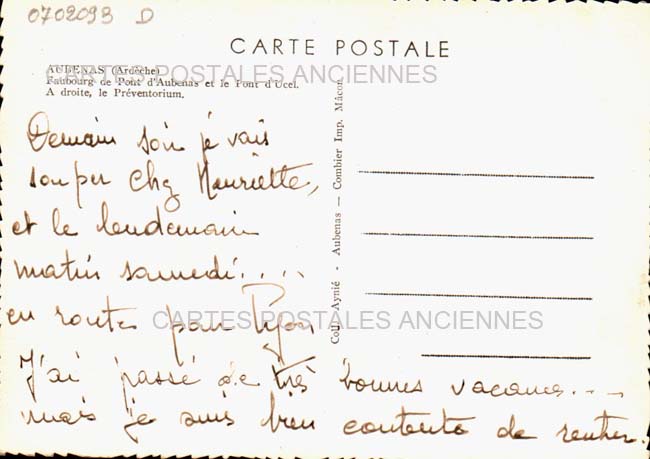 0702093 D
CARTE POSTALE
AUBENAS (Ardèche)
CARTES POSTALES ANCIENNES
Faubourg de Pont d'Aubenas et le Pont d'Ucel.
A droite, le Préventorium.
Demain soir je vais
souper chez Henriette,
et le lendemain
matin samedi....
en route pour Lyon
CARTES POSTALES ANCIENNES
J'ai passé de très bonnes vacances...
mais je suis bien contente de rentrer.
Coll. Aynié - Aubenas — Combier Imp. Mâcon